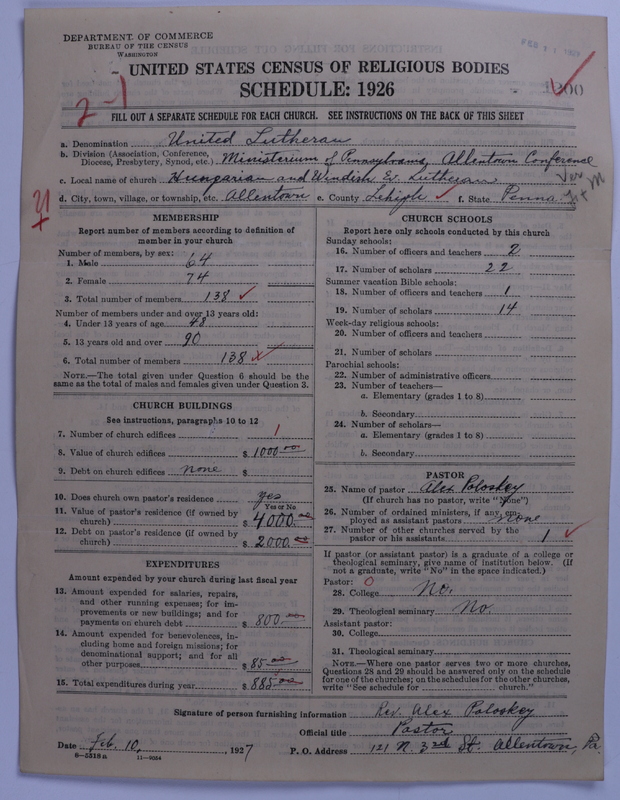 DEPARTMENT OF COMMERCE
BUREAU OF THE CENSUS
WASHINGTON
UNITED STATES CENSUS OF RELIGIOUS BODIES
SCHEDULE: 1926
2-1
FILL OUT A SEPARATE SCHEDULE FOR EACH CHURCH. SEE INSTRUCTIONS ON THE BACK OF THIS SHEET
a. Denomination United Lutheran
b. Division (Association, Conference, Diocese, Presbytery, Synod, etc.) Ministerium of Pennsylvania, Allentown Conference
c. Local name of church Hungarian and Windish Ev. Lutheran
d. City, town, village, or township, etc. Allentown e. County Lehigh f. State Penna.
MEMBERSHIP
Report number of members according to definition of
member in your church
Number of members, by sex:
1. Male 64
2. Female 74
3. Total number of members 138
Number of members under and over 13 years old:
4. Under 13 years of age 48
5. 13 years old and over 90
6. Total number of members 138
NOTE.—The total given under Question 6 should be the
same as the total of males and females given under Question 3.
CHURCH BUILDINGS
See instructions, paragraphs 10 to 12
7. Number of church edifices 1
8. Value of church edifices $ 1000.00
9. Debt on church edifices none $
10. Does church own pastor's residence yes
Yes or No
11. Value of pastor's residence (if owned by
church) $ 4000.00
12. Debt on pastor's residence (if owned by
church) $ 2000.00
EXPENDITURES
Amount expended by your church during last fiscal year
13. Amount expended for salaries, repairs,
and other running expenses; for im-
provements or new buildings; and for
payments on church debt $ 800.00
14. Amount expended for benevolences, in-
cluding home and foreign missions; for
denominational support; and for all
other purposes $ 85.00
15. Total expenditures during year $ 885.00
CHURCH SCHOOLS
Report here only schools conducted by this church
Sunday schools:
16. Number of officers and teachers 2
17. Number of scholars 22
Summer vacation Bible schools:
18. Number of officers and teachers 1
19. Number of scholars 14
Week-day religious schools:
20. Number of officers and teachers
21. Number of scholars
Parochial schools:
22. Number of administrative officers
23. Number of teachers—
a. Elementary (grades 1 to 8)
b. Secondary
24. Number of scholars—
a. Elementary (grades 1 to 8)
b. Secondary
PASTOR
25. Name of pastor Alex Poloskey
(If church has no pastor, write "None")
26. Number of ordained ministers, if any, em-
ployed as assistant pastors none
27. Number of other churches served by the
pastor or his assistants 1
If pastor (or assistant pastor) is a graduate of a college or
theological seminary, give name of Institution below. (If
not a graduate, write "No" in the space indicated.)
Pastor: O
28. College No.
29. Theological seminary No
Assistant pastor:
30. College
31. Theological seminary
NOTE.—Where one pastor serves two or more churches,
Questions 28 and 29 should be answered only on the schedule
for one of the churches; on the schedules for the other churches,
write "See schedule for church."
Signature of person furnishing information Rev. Alex Poloskey
Official title Pastor
Date Feb. 10, 1927 P. O. Address 121 N. 3rd St. Allentown, Pa.
8-5518a 11-9054